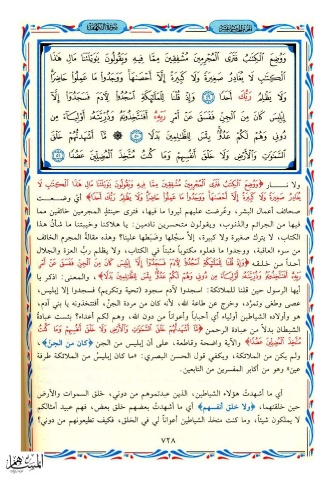 سورة الكهف
وَوُضِعَ الْكِتَابُ فَتَرَى الْمُجْرِمِينَ مُشْفِقِينَ مِمَّا فِيهِ وَيَقُولُونَ يَا وَيْلَتَنَا مَالِ هَٰذَا
الْكِتَابِ لَا يُغَادِرُ صَغِيرَةً وَلَا كَبِيرَةً إِلَّا أَحْصَاهَا وَوَجَدُوا مَا عَمِلُوا حَاضِرًا
وَلَا يَظْلِمُ رَبُّكَ أَحَدًا ۝٤٩ وَإِذْ قُلْنَا لِلْمَلَائِكَةِ اسْجُدُوا لِآدَمَ فَسَجَدُوا إِلَّا
إِبْلِيسَ كَانَ مِنَ الْجِنِّ فَفَسَقَ عَنْ أَمْرِ رَبِّهِ أَفَتَتَّخِذُونَهُ وَذُرِّيَّتَهُ أَوْلِيَاءَ مِن
دُونِي وَهُمْ لَكُمْ عَدُوٌّ بِئْسَ لِلظَّالِمِينَ بَدَلًا ۝٥٠ مَّا أَشْهَدتُّهُمْ خَلْقَ
السَّمَاوَاتِ وَالْأَرْضِ وَلَا خَلْقَ أَنفُسِهِمْ وَمَا كُنتُ مُتَّخِذَ الْمُضِلِّينَ عَضُدًا ۝٥١
﴿وَوُضِعَ الْكِتَابُ فَتَرَى الْمُجْرِمِينَ مُشْفِقِينَ مِمَّا فِيهِ وَيَقُولُونَ يَا وَيْلَتَنَا مَالِ هَٰذَا الْكِتَابِ لَا
يُغَادِرُ صَغِيرَةً وَلَا كَبِيرَةً إِلَّا أَحْصَاهَا وَوَجَدُوا مَا عَمِلُوا حَاضِرًا وَلَا يَظْلِمُ رَبُّكَ أَحَدًا﴾ أي وضعت
صحائف أعمال البشر، وعُرضت عليهم ليروا ما فيها، فترى حينئذٍ المجرمين خائفين مما
فيها من الجرائم والذنوب، ويقولون متحسرين نادمين: يا هلاكنا وخيبتنا ما شأنُ هذا
الكتاب، لا يترك صغيرة ولا كبيرة، إلاّ سجَّلها وضبطها علينا؟ وهذه مقالة المجرم الخائف
من سوء العاقبة، ووجدوا ما فعلوه مكتوباً مثبتاً في الكتاب، ولا يظلم ربُّ العزة والجلال
أحداً من خلقه ﴿وَإِذْ قُلْنَا لِلْمَلَائِكَةِ اسْجُدُوا لِآدَمَ فَسَجَدُوا إِلَّا إِبْلِيسَ كَانَ مِنَ الْجِنِّ فَفَسَقَ عَنْ أَمْرِ
رَبِّهِ أَفَتَتَّخِذُونَهُ وَذُرِّيَّتَهُ أَوْلِيَاءَ مِن دُونِي وَهُمْ لَكُمْ عَدُوٌّ بِئْسَ لِلظَّالِمِينَ بَدَلًا﴾، والمعنى: اذكر يا
أيها الرسول حين قلنا للملائكة: اسجدوا لآدم سجود (تحية وتكريم) فسجدوا إلا إبليس،
عصى وطغى وتمرّد، وخرج عن طاعة الله، لأنه كان من مردة الجنِّ، أفتتخذونه يا بني آدم،
هو وأولاده الشياطين أولياء أي أحباباً وأعواناً من دون الله، وهم لكم أعداء؟ بئست عبادةُ
الشيطان بدلاً من عبادة الرحمن ﴿مَّا أَشْهَدتُّهُمْ خَلْقَ السَّمَاوَاتِ وَالْأَرْضِ وَلَا خَلْقَ أَنفُسِهِمْ وَمَا كُنتُ
مُتَّخِذَ الْمُضِلِّينَ عَضُدًا﴾ والآية واضحة وقاطعة، على أن إبليس من الجن ﴿كان من الجنّ﴾،
ولم يكن من الملائكة، ويكفي قول الحسن البصري: «ما كان إبليسُ من الملائكة طرفة
عين» وهو من أكابر المفسرين من التابعين.
أي ما أشهدتُ هؤلاء الشياطين، الذين عبدتموهم من دوني، خلق السموات والأرض
حين خلقتهما، ﴿ولا خلق أنفسهم﴾ أي ما أشهدتُ بعضهم خلق بعض، فهم عبيد أمثالكم
لا يملكون شيئاً، وما كنت متخذ الشياطين أعواناً لي في الخلق، فكيف تطيعونهم من دوني؟
٧٢٨